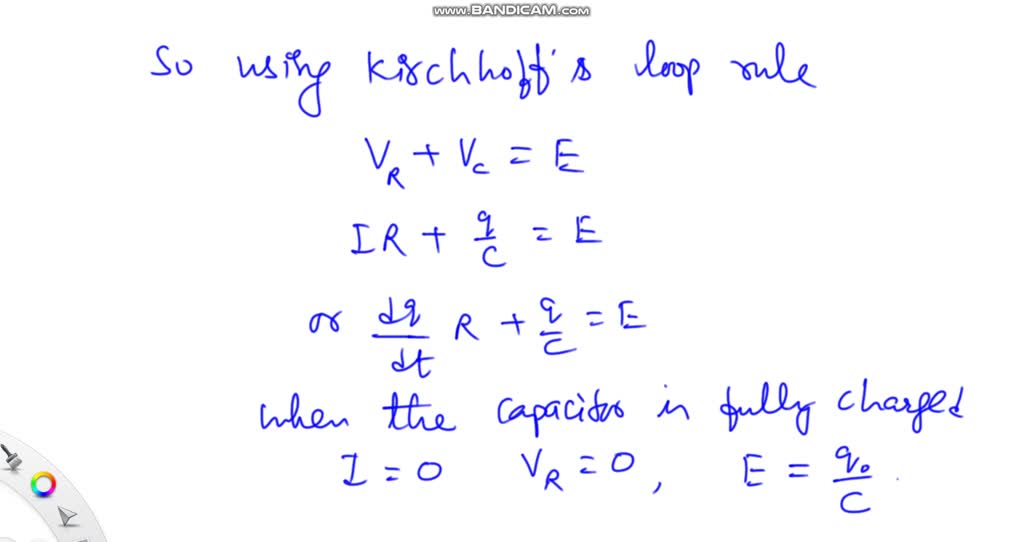 www.BANDICAM.com
So using Kirchhoff's loop rule
V_R + V_C = E
IR + q/C = E
or dq/dt R + q/C = E
when the capacitor is fully charged
I = 0 V_R = 0, E = q₀/C.